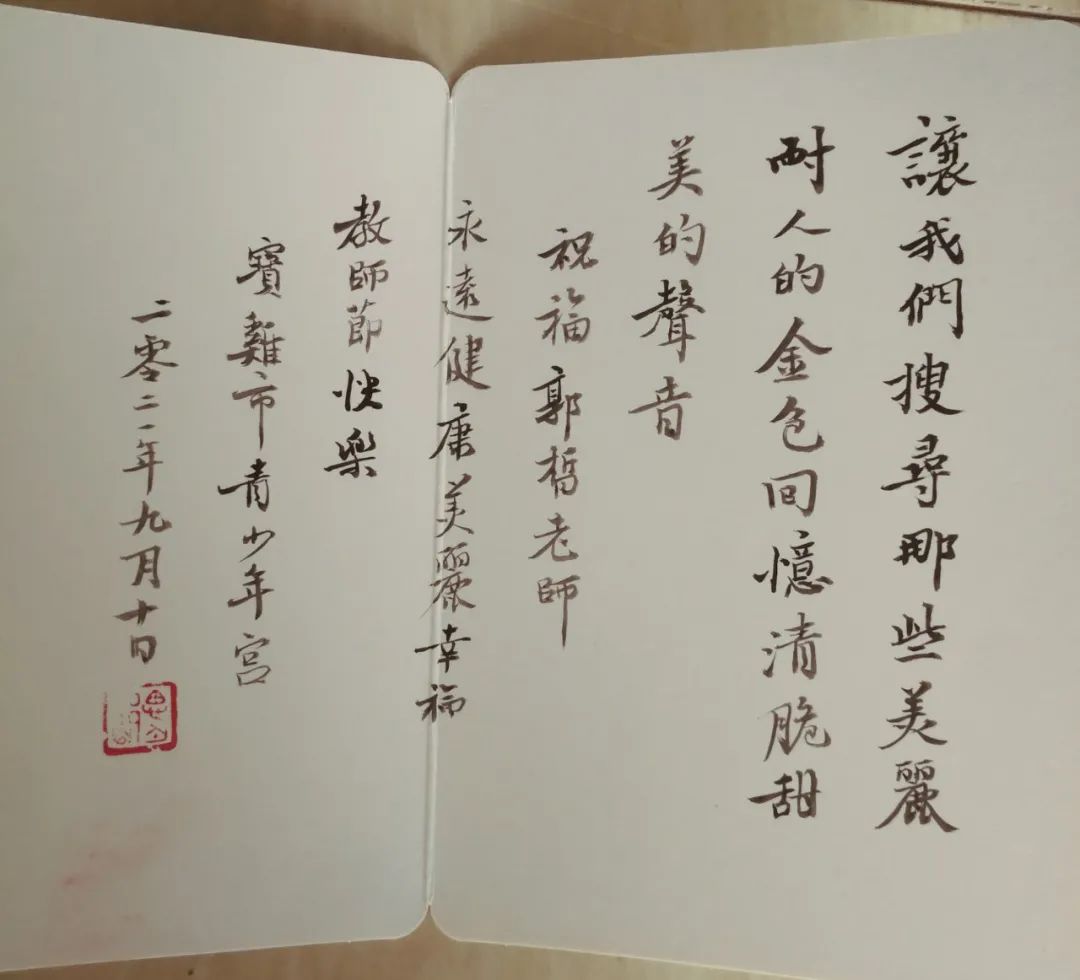 讓我們搜尋那些美麗
耐人的金色回憶清脆甜
美的聲音
祝福郭皙老師
永遠健康美麗幸福
教師節快樂
寶雞市青少年宮
二零二一年九月十日